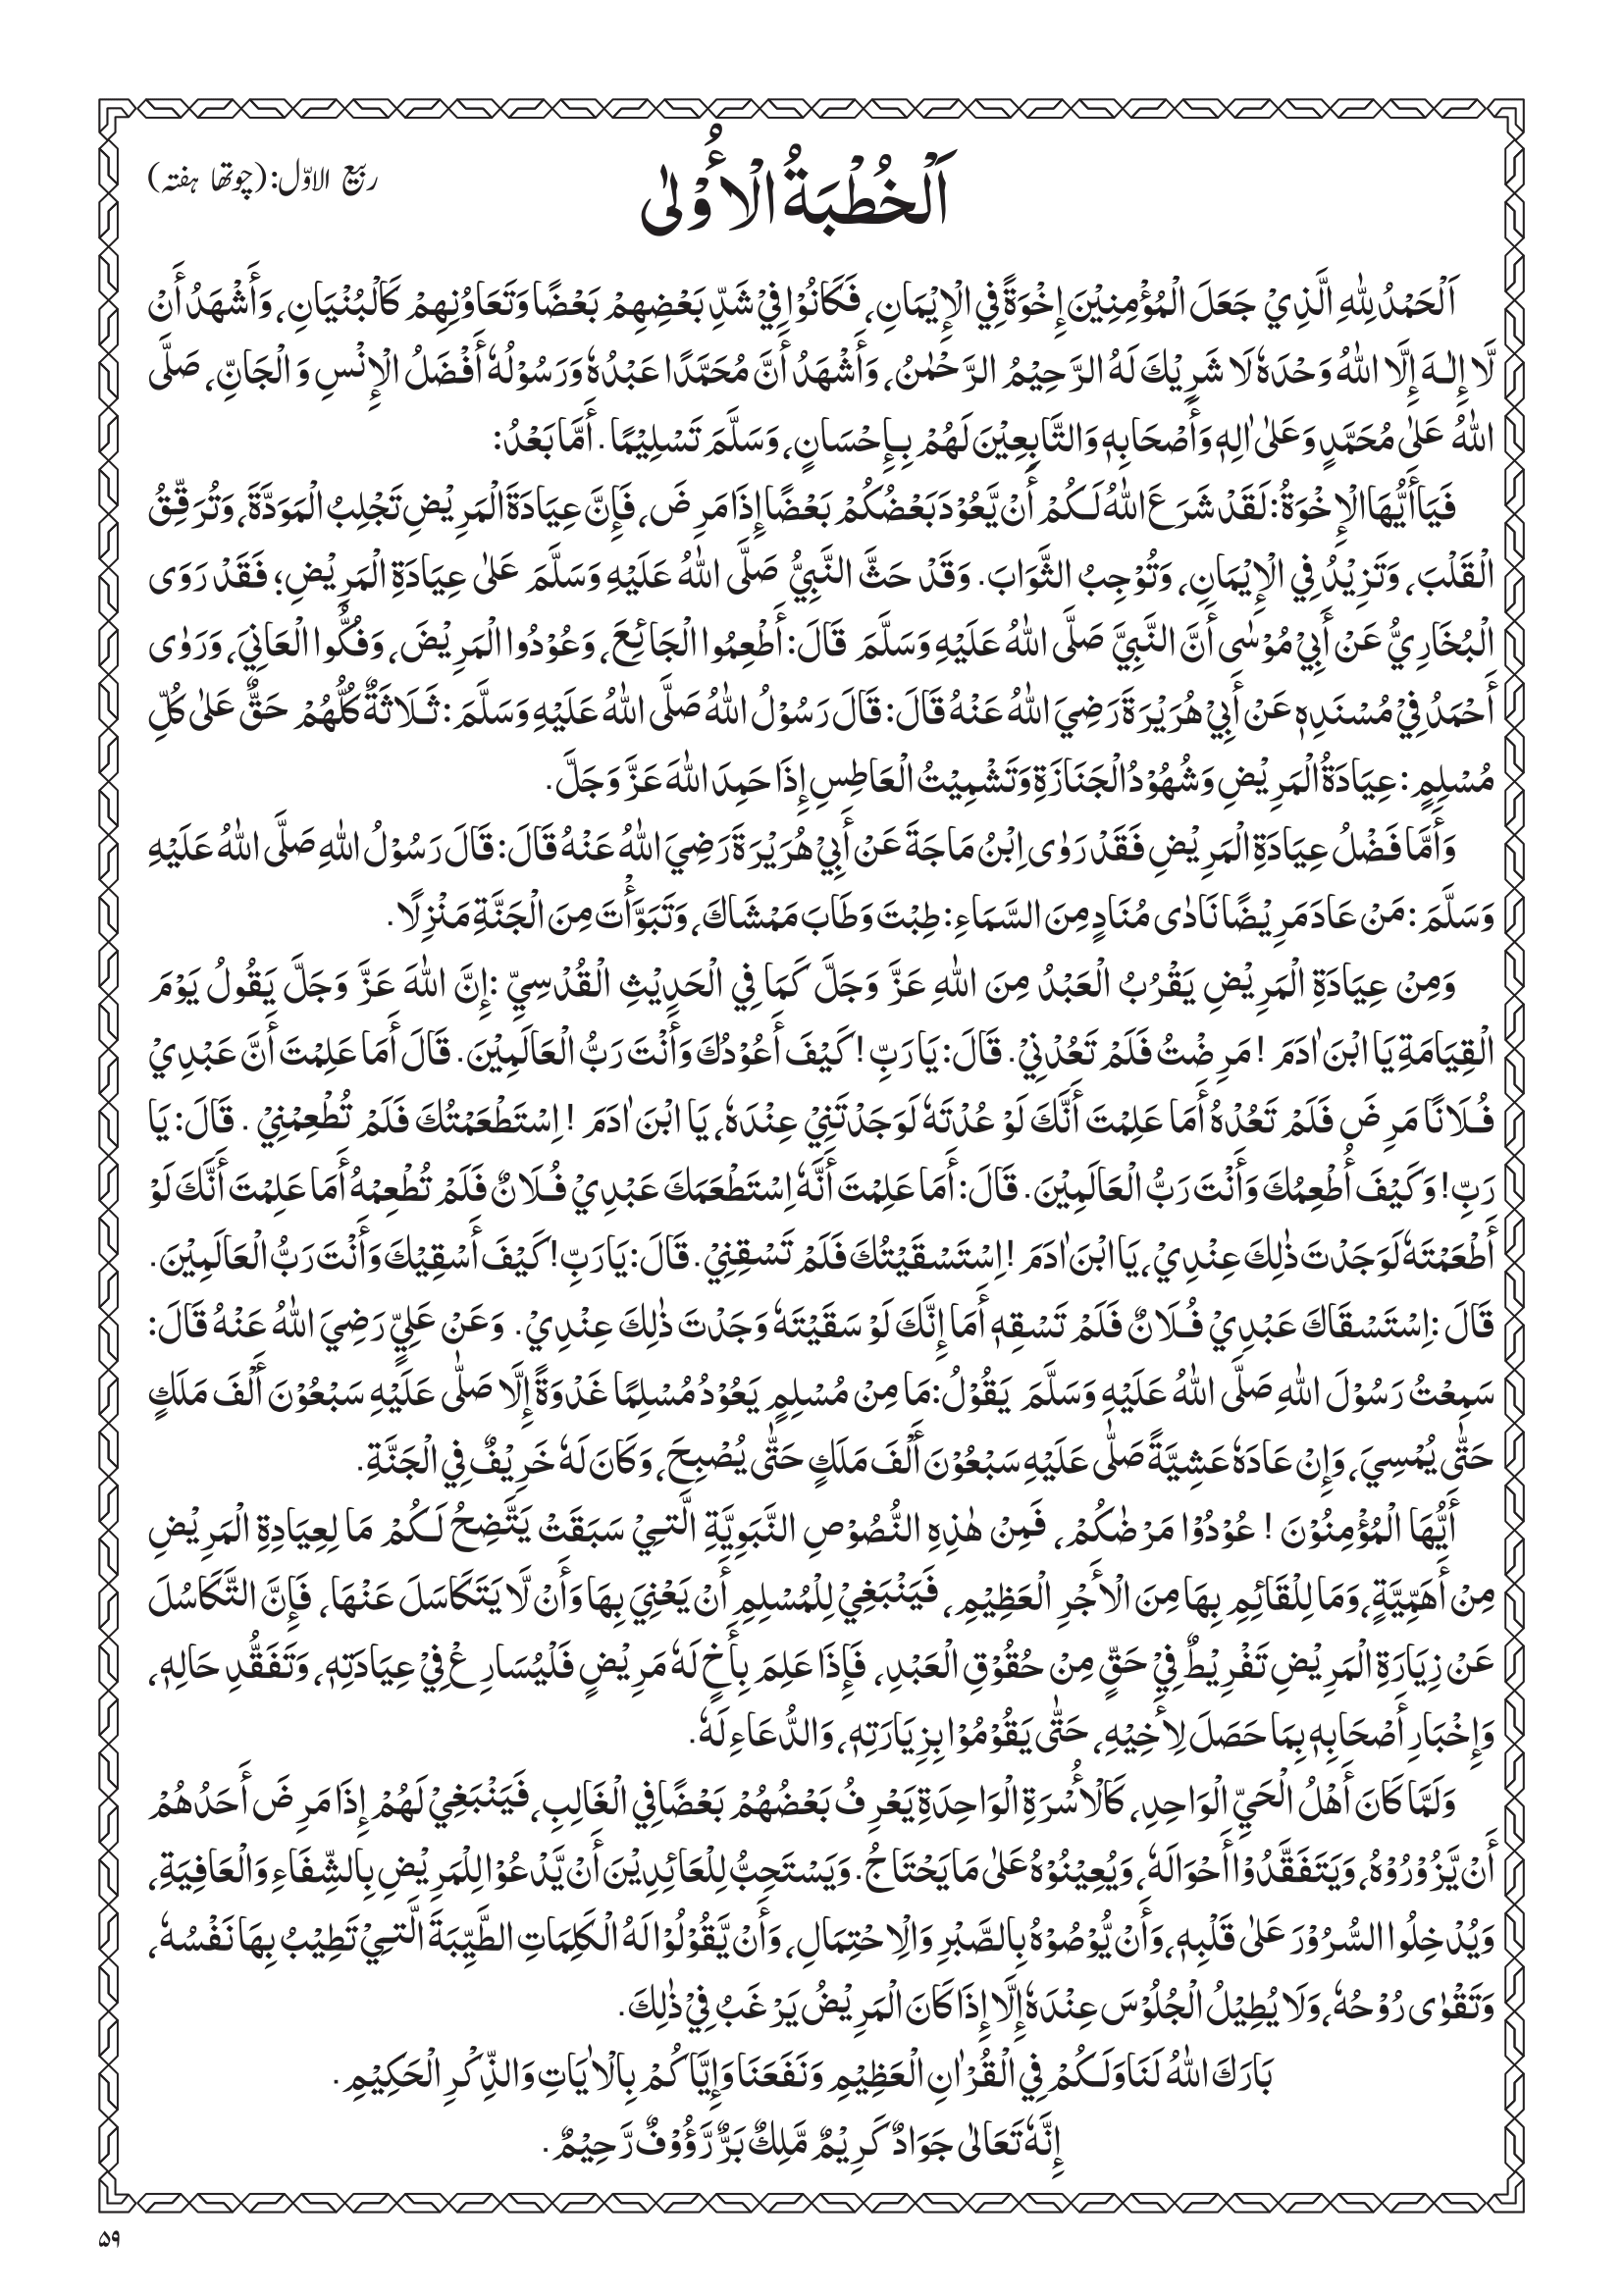 ربیع الاوّل:(چوتھا ہفتہ)
اَلْخُطْبَةُ الْأُوْلٰى
اَلْحَمْدُ لِلّٰهِ الَّذِيْ جَعَلَ الْمُؤْمِنِيْنَ إِخْوَةً فِي الْإِيْمَانِ، فَكَانُوْا فِيْ شَدِّ بَعْضِهِمْ بَعْضًا وَتَعَاوُنِهِمْ كَالْبُنْيَانِ، وَأَشْهَدُ أَنْ
لَّا إِلٰـهَ إِلَّا اللّٰهُ وَحْدَهٗ لَا شَرِيْكَ لَهُ الرَّحِيْمُ الرَّحْمٰنُ، وَأَشْهَدُ أَنَّ مُحَمَّدًا عَبْدُهٗ وَرَسُوْلُهٗ أَفْضَلُ الْإِنْسِ وَ الْجَانِّ، صَلَّى
اللّٰهُ عَلٰى مُحَمَّدٍ وَعَلٰى اٰلِهٖ وَأَصْحَابِهٖ وَالتَّابِعِيْنَ لَهُمْ بِـإِحْسَانٍ، وَسَلَّمَ تَسْلِيْمًا . أَمَّا بَعْدُ:
فَيَا أَيُّهَا الْإِخْوَةُ: لَقَدْ شَرَعَ اللّٰهُ لَـكُمْ أَنْ يَّعُوْدَ بَعْضُكُمْ بَعْضًا إِذَا مَرِضَ، فَإِنَّ عِيَادَةَ الْمَرِيْضِ تَجْلِبُ الْمَوَدَّةَ، وَتُرَقِّقُ
الْقَلْبَ، وَتَزِيْدُ فِي الْإِيْمَانِ، وَتُوْجِبُ الثَّوَابَ. وَقَدْ حَثَّ النَّبِيُّ صَلَّى اللّٰهُ عَلَيْهِ وَسَلَّمَ عَلٰى عِيَادَةِ الْمَرِيْضِ؛ فَقَدْ رَوَى
الْبُخَارِيُّ عَنْ أَبِيْ مُوْسٰى أَنَّ النَّبِيَّ صَلَّى اللّٰهُ عَلَيْهِ وَسَلَّمَ قَالَ: أَطْعِمُوا الْجَائِعَ، وَعُوْدُوا الْمَرِيْضَ، وَفُكُّوا الْعَانِيَ، وَرَوٰى
أَحْمَدُ فِيْ مُسْنَدِهٖ عَنْ أَبِيْ هُرَيْرَةَ رَضِيَ اللّٰهُ عَنْهُ قَالَ: قَالَ رَسُوْلُ اللّٰهُ صَلَّى اللّٰهُ عَلَيْهِ وَسَلَّمَ: ثَـلَاثَةٌ كُلُّهُمْ حَقٌّ عَلٰى كُلِّ
مُسْلِمٍ: عِيَادَةُ الْمَرِيْضِ وَشُهُوْدُ الْجَنَازَةِ وَتَشْمِيْتُ الْعَاطِسِ إِذَا حَمِدَ اللّٰهَ عَزَّ وَجَلَّ.
وَأَمَّا فَضْلُ عِيَادَةِ الْمَرِيْضِ فَقَدْ رَوٰى اِبْنُ مَاجَةَ عَنْ أَبِيْ هُرَيْرَةَ رَضِيَ اللّٰهُ عَنْهُ قَالَ: قَالَ رَسُوْلُ اللّٰهِ صَلَّى اللّٰهُ عَلَيْهِ
وَسَلَّمَ: مَنْ عَادَ مَرِيْضًا نَادٰى مُنَادٍ مِنَ السَّمَاءِ: طِبْتَ وَطَابَ مَمْشَاكَ، وَتَبَوَّأْتَ مِنَ الْجَنَّةِ مَنْزِلًا.
وَمِنْ عِيَادَةِ الْمَرِيْضِ يَقْرُبُ الْعَبْدُ مِنَ اللّٰهِ عَزَّ وَجَلَّ كَمَا فِي الْحَدِيْثِ الْقُدْسِيِّ :إِنَّ اللّٰهَ عَزَّ وَجَلَّ يَقُولُ يَوْمَ
الْقِيَامَةِ يَا ابْنَ اٰدَمَ ! مَرِضْتُ فَلَمْ تَعُدْنِيْ. قَالَ: يَا رَبِّ ! كَيْفَ أَعُوْدُكَ وَأَنْتَ رَبُّ الْعَالَمِيْنَ. قَالَ أَمَا عَلِمْتَ أَنَّ عَبْدِيْ
فُـلَانًا مَرِضَ فَلَمْ تَعُدْهُ أَمَا عَلِمْتَ أَنَّكَ لَوْ عُدْتَهٗ لَوَجَدْتَنِيْ عِنْدَهٗ، يَا ابْنَ اٰدَمَ ! اِسْتَطْعَمْتُكَ فَلَمْ تُطْعِمْنِيْ . قَالَ: يَا
رَبِّ! وَكَيْفَ أُطْعِمُكَ وَأَنْتَ رَبُّ الْعَالَمِيْنَ. قَالَ: أَمَا عَلِمْتَ أَنَّهٗ اِسْتَطْعَمَكَ عَبْدِيْ فُـلَانٌ فَلَمْ تُطْعِمْهُ أَمَا عَلِمْتَ أَنَّكَ لَوْ
أَطْعَمْتَهٗ لَوَجَدْتَ ذٰلِكَ عِنْدِيْ، يَا ابْنَ اٰدَمَ ! اِسْتَسْقَيْتُكَ فَلَمْ تَسْقِنِيْ. قَالَ: يَا رَبِّ! كَيْفَ أَسْقِيْكَ وَأَنْتَ رَبُّ الْعَالَمِيْنَ.
قَالَ :اِسْتَسْقَاكَ عَبْدِيْ فُـلَانٌ فَلَمْ تَسْقِهٖ أَمَا إِنَّكَ لَوْ سَقَيْتَهٗ وَجَدْتَ ذٰلِكَ عِنْدِيْ. وَعَنْ عَلِيٍّ رَضِيَ اللّٰهُ عَنْهُ قَالَ:
سَمِعْتُ رَسُوْلَ اللّٰهِ صَلَّى اللّٰهُ عَلَيْهِ وَسَلَّمَ يَقُوْلُ:مَا مِنْ مُسْلِمٍ يَعُوْدُ مُسْلِمًا غَدْوَةً إِلَّا صَلّٰى عَلَيْهِ سَبْعُوْنَ أَلْفَ مَلَكٍ
حَتّٰى يُمْسِيَ، وَإِنْ عَادَهٗ عَشِيَّةً صَلّٰى عَلَيْهِ سَبْعُوْنَ أَلْفَ مَلَكٍ حَتّٰى يُصْبِحَ، وَكَانَ لَهٗ خَرِيْفٌ فِي الْجَنَّةِ.
أَيُّهَا الْمُؤْمِنُوْنَ ! عُوْدُوْا مَرْضٰكُمْ، فَمِنْ هٰذِهِ النُّصُوْصِ النَّبَوِيَّةِ الَّتِـيْ سَبَقَتْ يَتَّضِحُ لَـكُمْ مَا لِعِيَادِةِ الْمَرِيْضِ
مِنْ أَهَمِّيَّةٍ، وَمَا لِلْقَائِمِ بِهَا مِنَ الْأَجْرِ الْعَظِيْمِ، فَيَنْبَغِيْ لِلْمُسْلِمِ أَنْ يَعْنِيَ بِهَا وَأَنْ لَّا يَتَكَاسَلَ عَنْهَا، فَإِنَّ التَّكَاسُلَ
عَنْ زِيَارَةِ الْمَرِيْضِ تَفْرِيْطٌ فِيْ حَقٍّ مِنْ حُقُوْقِ الْعَبْدِ، فَإِذَا عَلِمَ بِأَخٍ لَهٗ مَرِيْضٍ فَلْيُسَارِعْ فِيْ عِيَادَتِهٖ، وَتَفَقُّدِ حَالِهٖ،
وَإِخْبَارِ أَصْحَابِهٖ بِمَا حَصَلَ لِأَخِيْهِ، حَتّٰى يَقُوْمُوْا بِزِيَارَتِهٖ، وَالدُّعَاءِ لَهٗ.
وَلَمَّا كَانَ أَهْلُ الْحَيِّ الْوَاحِدِ، كَالْأُسْرَةِ الْوَاحِدَةِ يَعْرِفُ بَعْضُهُمْ بَعْضًا فِي الْغَالِبِ، فَيَنْبَغِيْ لَهُمْ إِذَا مَرِضَ أَحَدُهُمْ
أَنْ يَّزُوْرُوْهُ، وَيَتَفَقَّدُوْا أَحْوَالَهٗ، وَيُعِيْنُوْهُ عَلٰى مَا يَحْتَاجُ. وَيَسْتَحِبُّ لِلْعَائِدِيْنَ أَنْ يَّدْعُوْا لِلْمَرِيْضِ بِالشِّفَاءِ وَالْعَافِيَةِ،
وَيُدْخِلُوا السُّرُوْرَ عَلٰى قَلْبِهٖ، وَأَنْ يُّوْصُوْهُ بِالصَّبْرِ وَالْاِحْتِمَالِ، وَأَنْ يَّقُوْلُوْا لَهُ الْكَلِمَاتِ الطَّيِّبَةَ الَّتِـيْ تَطِيْبُ بِهَا نَفْسُهٗ،
وَتَقْوٰى رُوْحُهٗ، وَلَا يُطِيْلُ الْجُلُوْسَ عِنْدَهٗ إِلَّا إِذَا كَانَ الْمَرِيْضُ يَرْغَبُ فِيْ ذٰلِكَ.
بَارَكَ اللّٰهُ لَنَا وَلَـكُمْ فِي الْقُرْاٰنِ الْعَظِيْمِ وَنَفَعَنَا وَإِيَّاكُمْ بِالْاٰيَاتِ وَالذِّكْرِ الْحَكِيْمِ.
إِنَّهٗ تَعَالٰى جَوَادٌ كَرِيْمٌ مَّلِكٌ بَرٌّ رَّؤُوْفٌ رَّحِيْمٌ.
۵۹